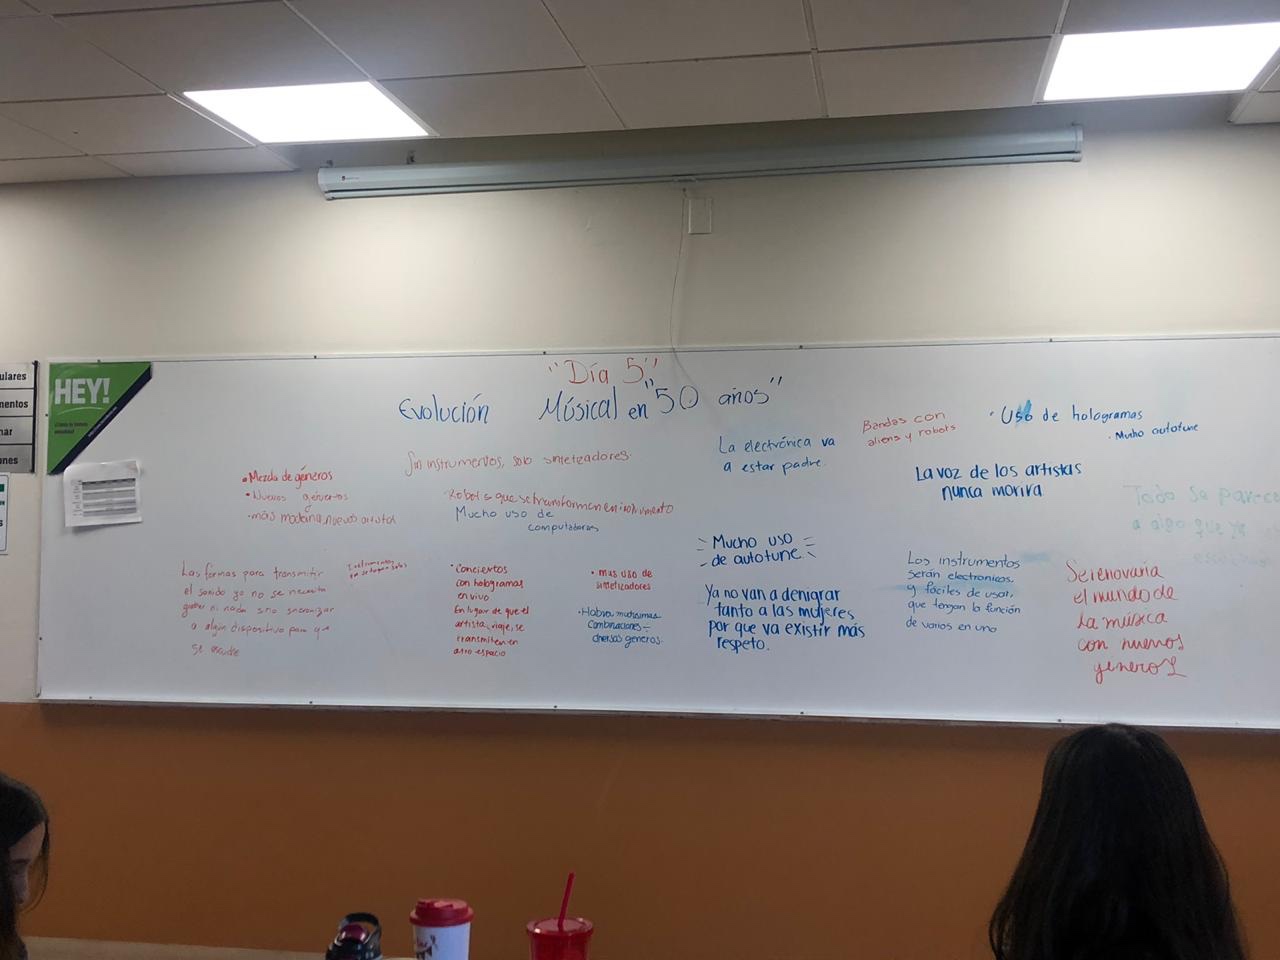 HEY!
ulares
mentos
nar
ones
"Día 5"
Evolución Músical en "50 años"
• Mezcla de géneros
• Nuevos géneros
y
• más moderna, nuevos
Sin instrumentos, solo sintetizadores.
Robots que se transforman en instrumento
Mucho uso de
computadoras
La electrónica va
a estar padre.
Bandas con
aliens y robots
• Uso de hologramas
• Mucho autotune
La voz de los artistas
nunca morira
Todo se parece
a algo que ya
Las formas para transmitir
el sonido ya no se necesita
grabar ni nada sino sincronizar
a algún dispositivo para que
se escuche
Instrumentos
• Conciertos
con hologramas
en vivo
En lugar de que el
artista viaje, se
transmiten en
otro espacio
• mas uso de
sintetizadores
• Habra muchisimas
combinaciones
diversos generos.
Mucho uso
de autotune
Ya no van a denigrar
tanto a las mujeres
por que va existir más
respeto.
Los instrumentos
serán electronicos,
y fáciles de usar,
que tengan la función
de varios en uno
Se renovaria
el mundo de
la música
con nuevos
géneros